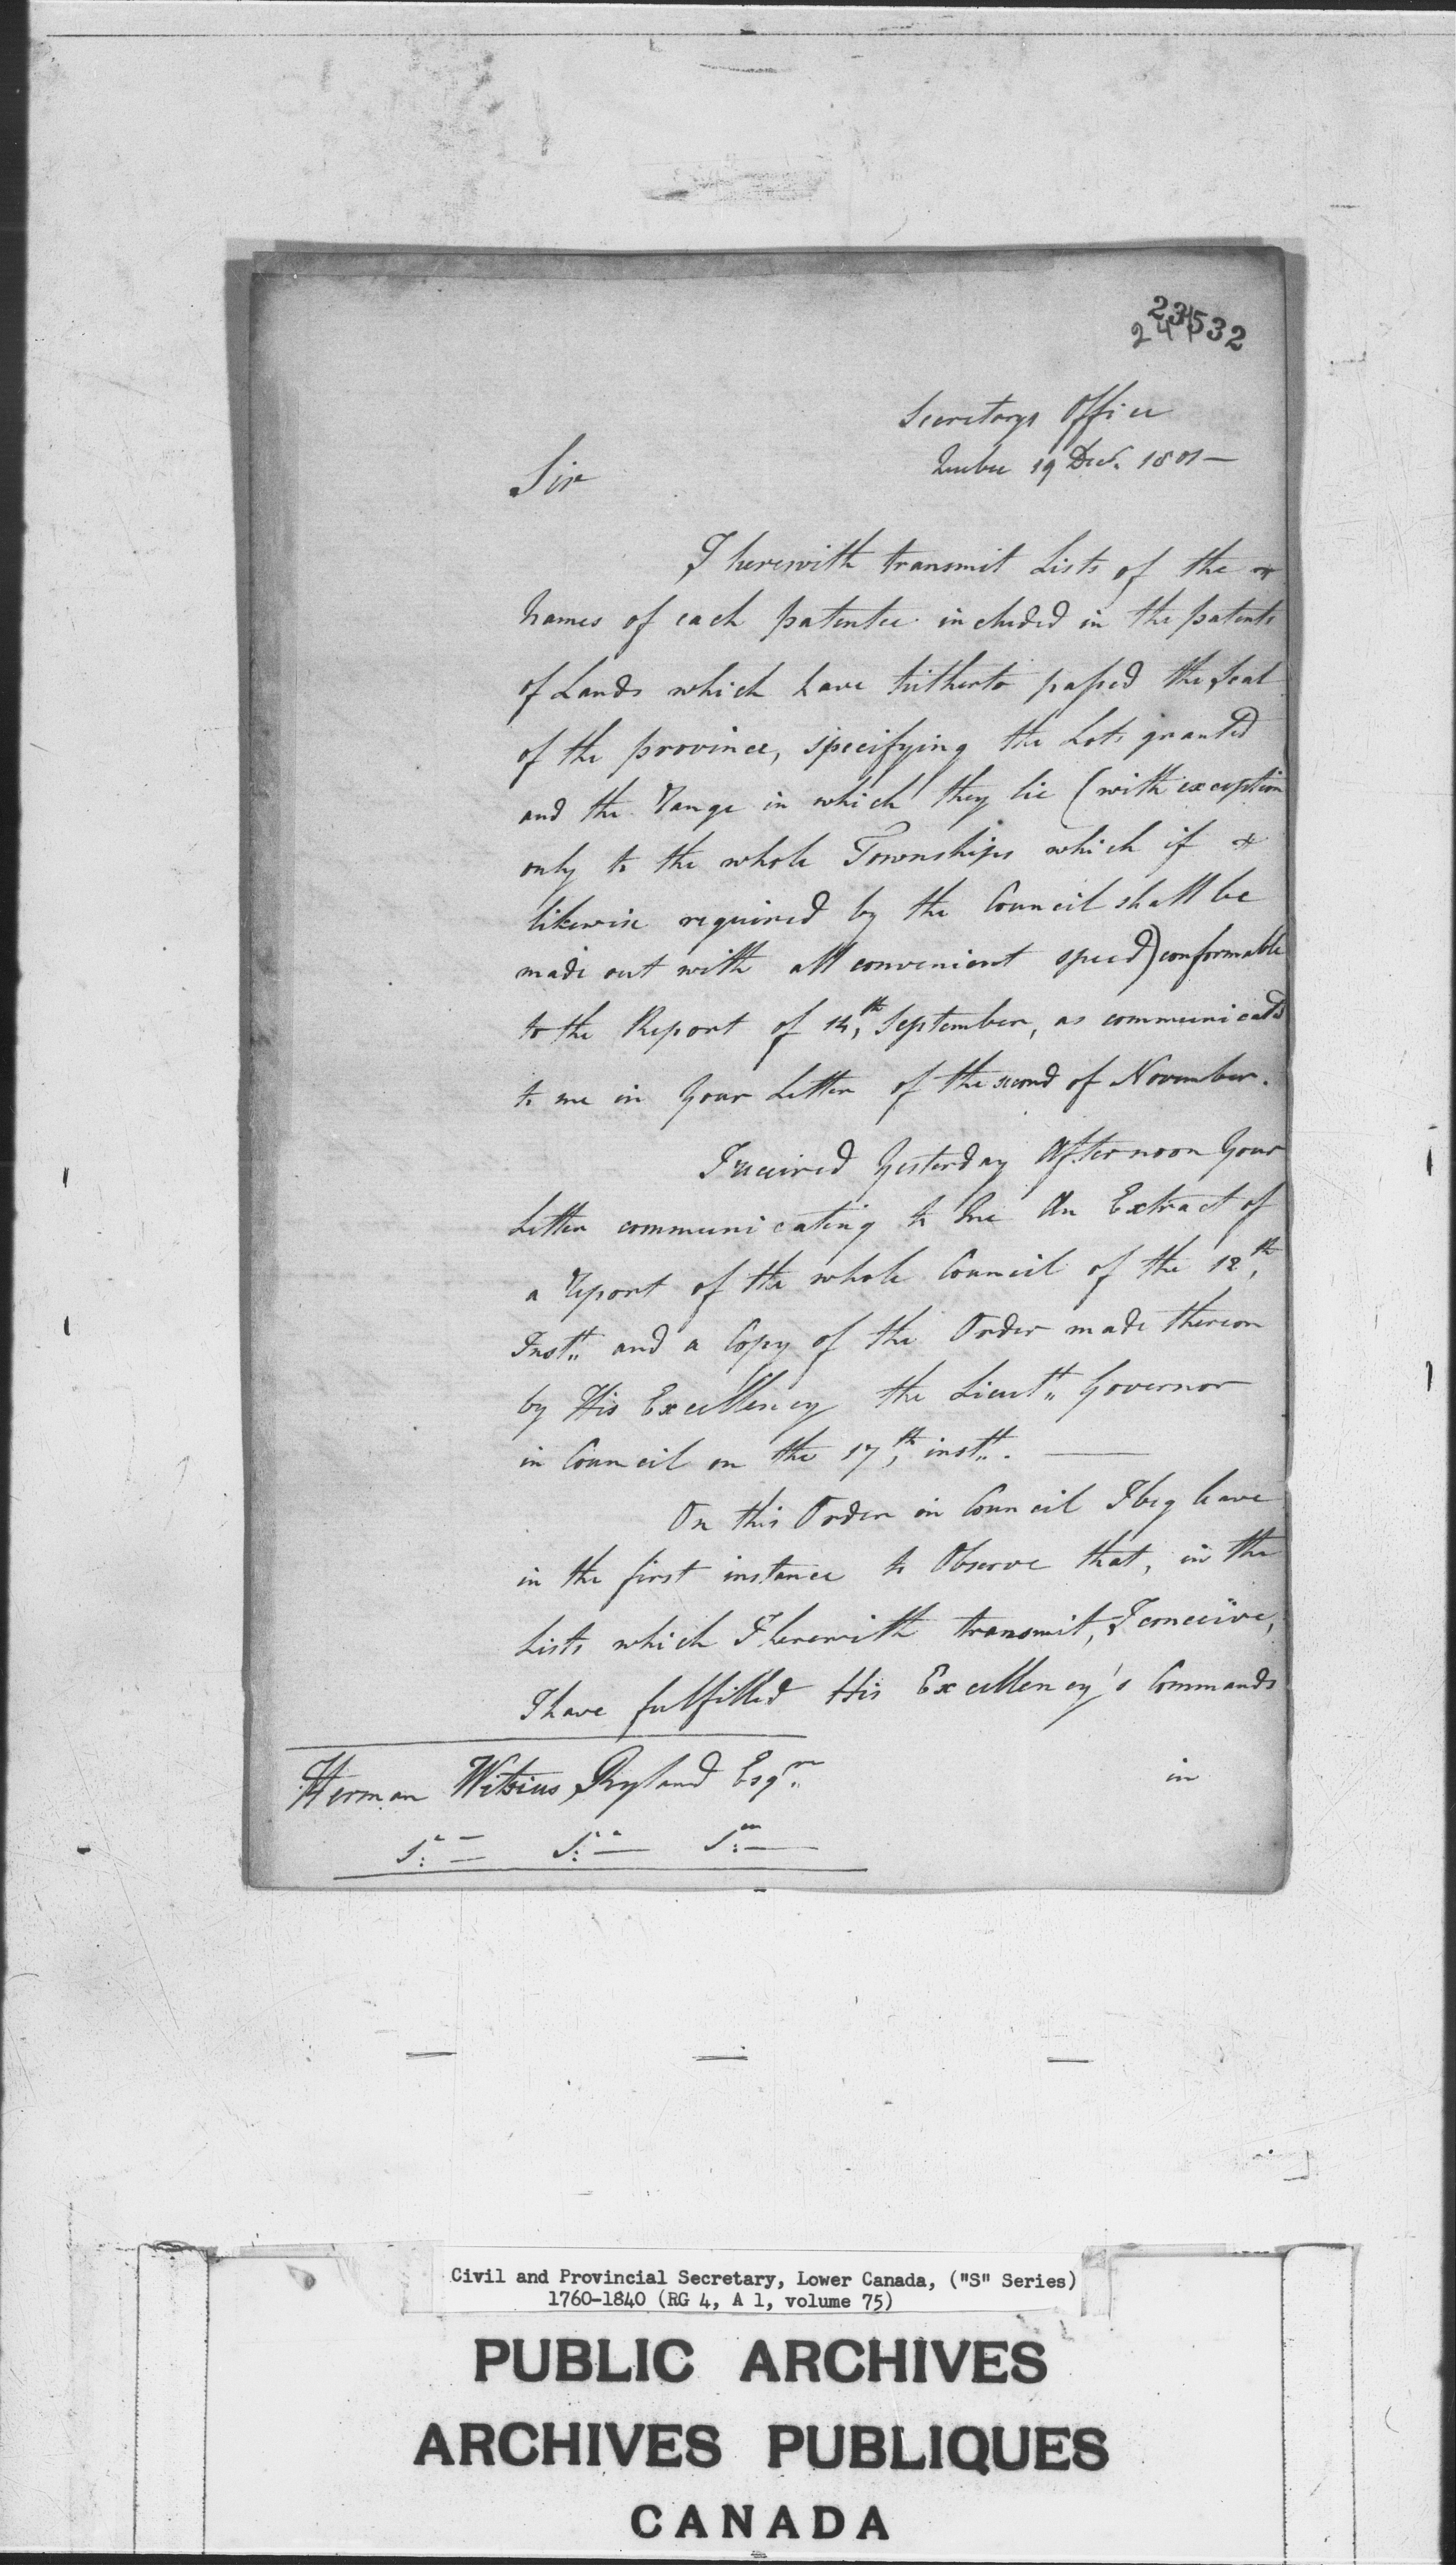 23532
244
Secretarys Office
Quebec 19 Decr. 1801—
Sir
I herewith transmit Lists of the
Names of each patentee included in the patents
of Lands which have hitherto passed the Seal
of the province, specifying the Lots granted
and the Range in which they lie (with exception
only to the whole Townships which if
likewise required by the Council shall be
made out with all convenient speed) conformable
to the Report of 14th, September, as communicated
to me in Your Letter of the second of November.
I received Yesterday Afternoon Your
Letter communicating to Me An Extract of
a Report of the whole Council of the 12th,
Instt. and a Copy of the Order made thereon
by His Excellency the Lieutt. Governor
in Council on the 17th, instt. —
On this Order in Council I beg leave
in the first instance to Observe that, in the
Lists which I herewith transmit, I conceive,
I have fulfilled His Excellency's Commands
in
Herman Witsius Ryland Esqre.
Civil and Provincial Secretary, Lower Canada, ("S" Series)
1760-1840 (RG 4, A 1, volume 75)
PUBLIC ARCHIVES
ARCHIVES PUBLIQUES
CANADA